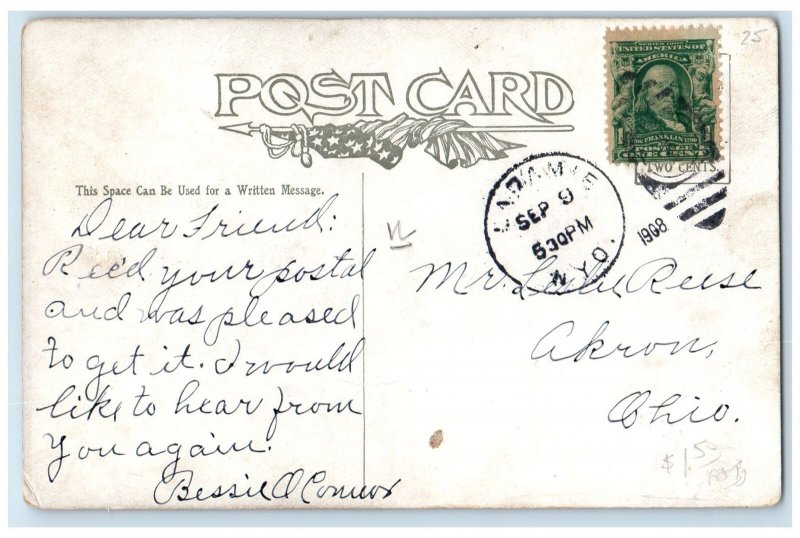 25
POST CARD
SERIES 1902
UNITED STATES OF
AMERICA
FRANKLIN
POSTAGE
1 1
ONE CENT
TWO CENTS
This Space Can Be Used for a Written Message.
LARAMIE
SEP 9
530PM
WYO.
1908
Dear Friend:
Rec'd your postal
and was pleased
to get it. I would
like to hear from
you again.
Bessie O'Connor
Mr. Reese
Akron,
Ohio.
$1.50